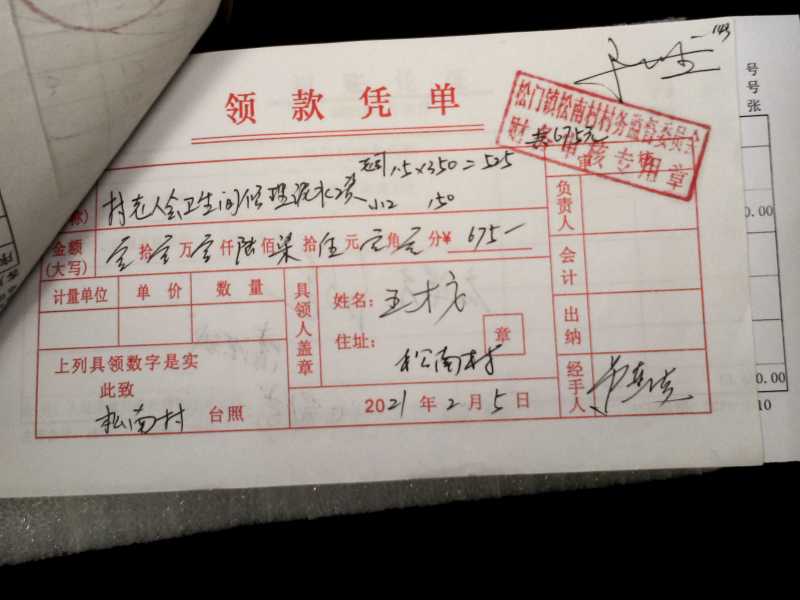 143
号
号
张
领款凭单
松门镇松南村村务监督委员会
共675元
审核专用章
1.5×350=525
村老人会卫生间修理流水费
小工 150
称)
负责人
金额(大写) 零拾零万零仟陆佰柒拾伍元零角零分¥ 675-
会计
计量单位 单价 数量
具领人盖章
姓名:王才方
出纳
住址:松南村
章
上列具领数字是实
此致
松南村 台照
2021年2月5日
经手人
0.00
0.00
10